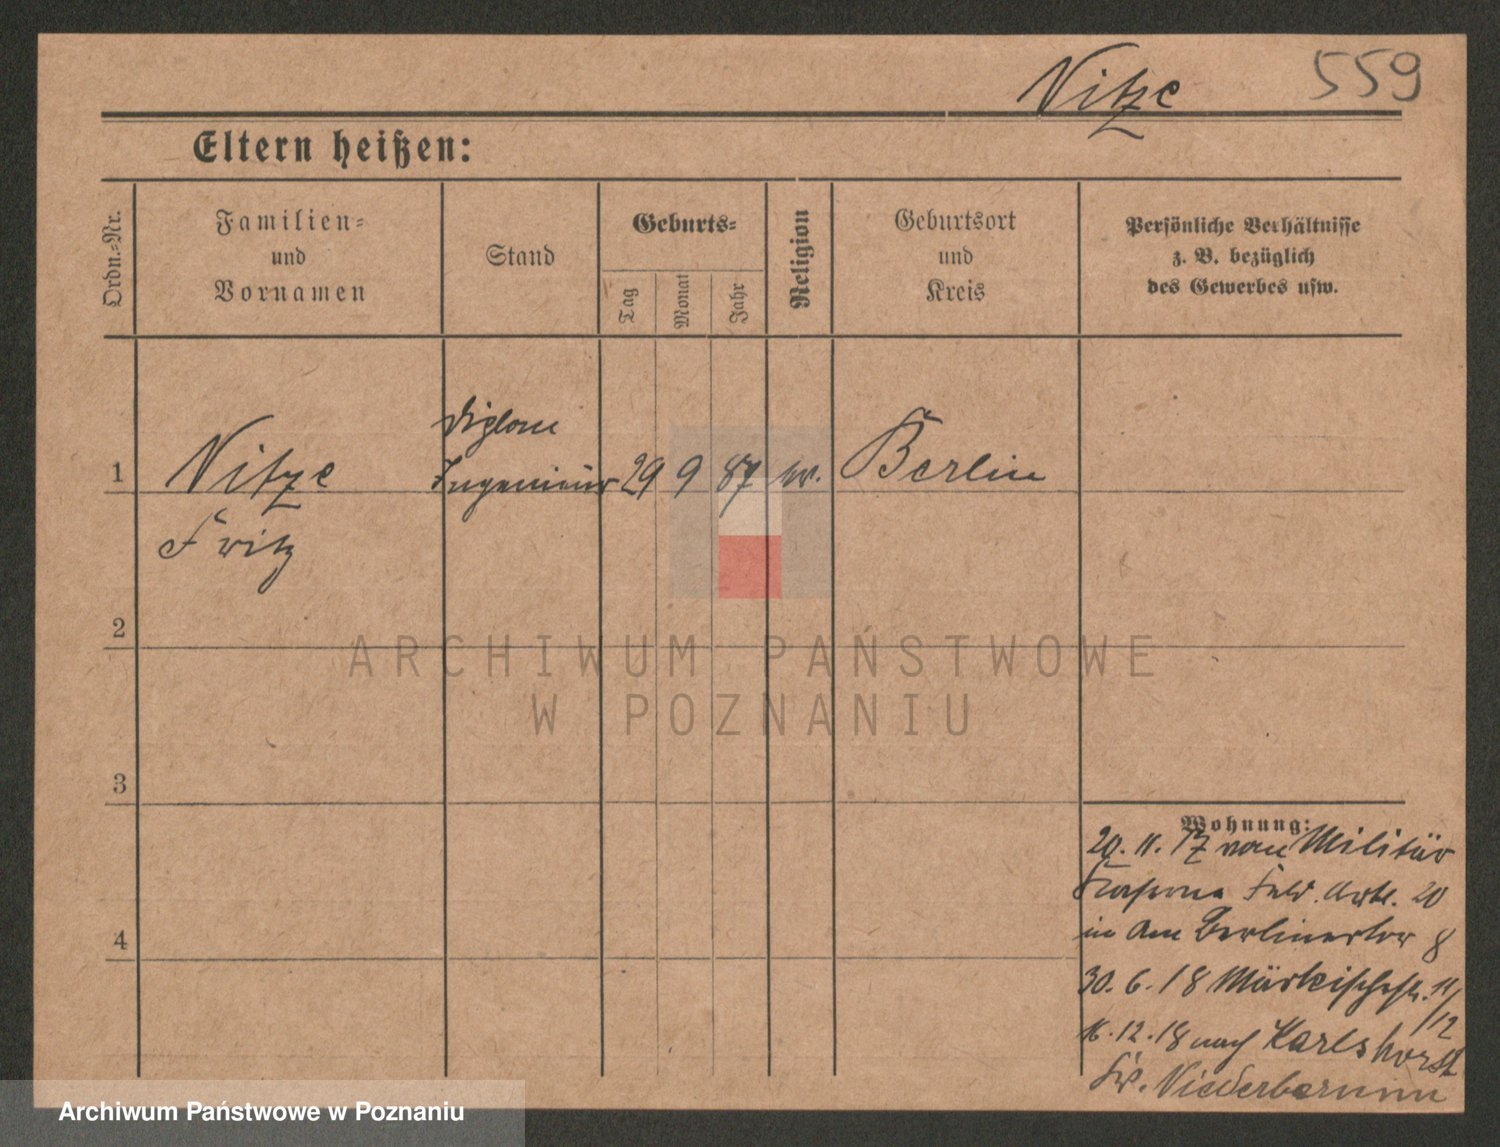 Nitze 559
Eltern heißen:
Ordn.=Nr.
Familien=
und
Vornamen
Stand
Geburts=
Tag
Monat
Jahr
Religion
Geburtsort
und
Kreis
Persönliche Verhältnisse
z. B. bezüglich
des Gewerbes usw.
Diplom
1 Nitze Ingenieur 29 9 87 ev. Berlin
Fritz
2
3
4
Wohnung:
20. 11. 17 vom Militär
Kaserne Feld. Artl. 20
in Am Berlinertor 8
30. 6. 18 Märkischestr. 11/12
16. 12. 18 nach Karlshorst
Niederbarnim
ARCHIWUM PAŃSTWOWE
W POZNANIU
Archiwum Państwowe w Poznaniu